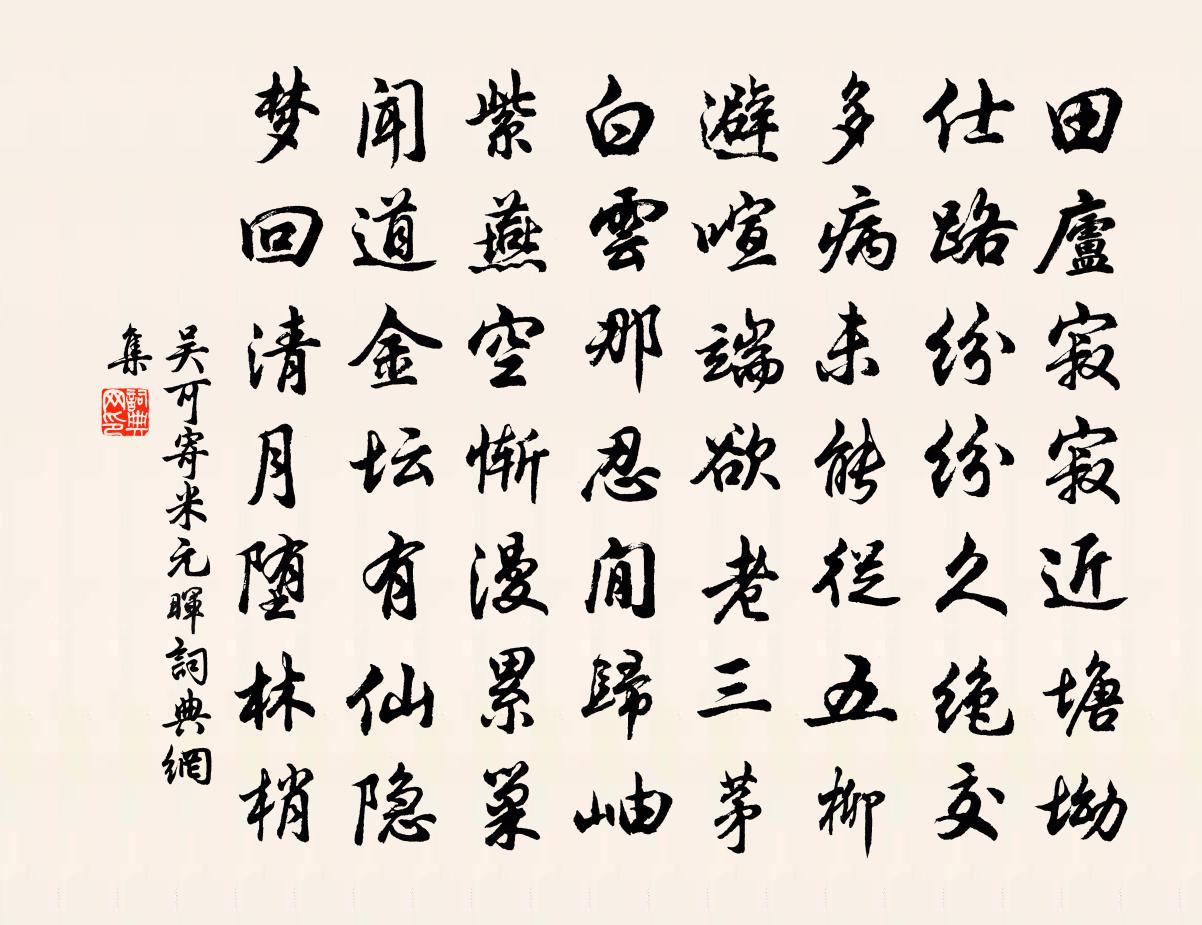 田廬寂寂近塘坳
仕路纷纷久绝交
多病未能從五柳
避喧端欲老三茅
白雲那忍閒歸岫
紫燕空慚漫累巢
闻道金坛有仙隐
梦回清月堕林梢
吴可寄米元暉詞典網
集
詞典
网印